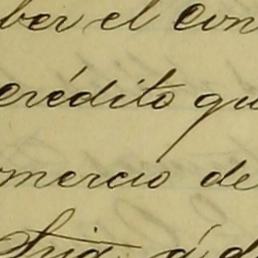 ber el con
crédito qu
omercio de